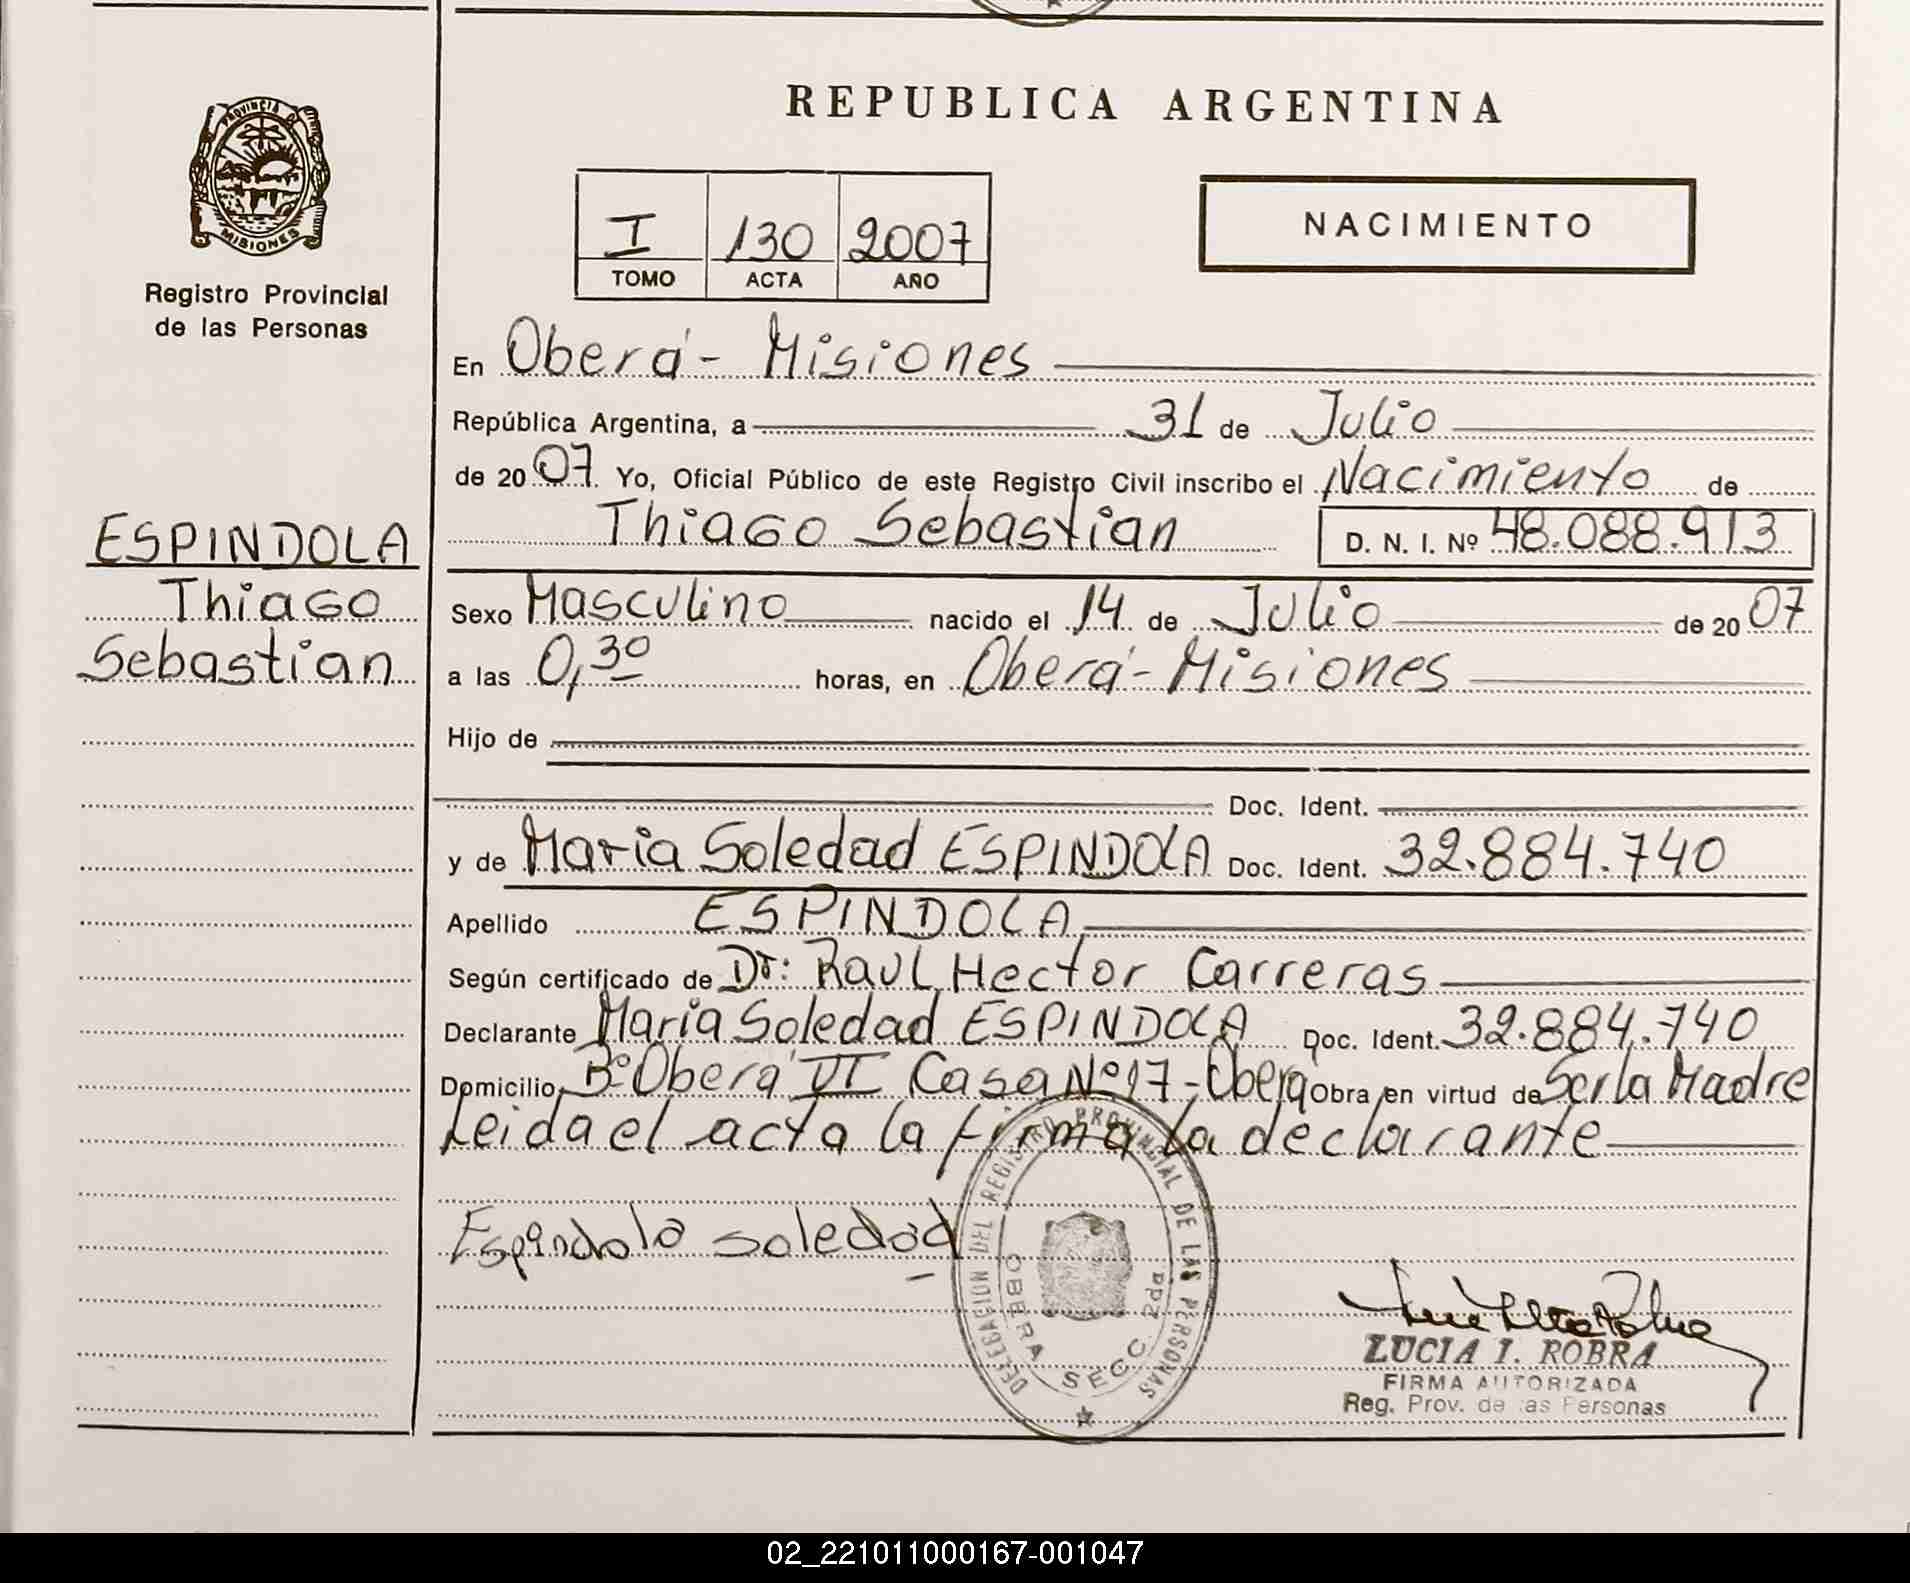 REPUBLICA ARGENTINA
PROVINCIA DE MISIONES
Registro Provincial
de las Personas
I 130 2007
TOMO ACTA AÑO
NACIMIENTO
En Oberá - Misiones
República Argentina, a 31 de Julio
de 2007. Yo, Oficial Público de este Registro Civil inscribo el Nacimiento de
Thiago Sebastian D. N. I. Nº 48.088.913
ESPINDOLA
Thiago
Sebastian
Sexo Masculino nacido el 14 de Julio de 2007
a las 0,30 horas, en Oberá - Misiones
Hijo de
Doc. Ident.
y de Maria Soledad ESPINDOLA Doc. Ident. 32.884.740
Apellido ESPINDOLA
Según certificado de Dr: Raul Hector Carreras
Declarante Maria Soledad ESPINDOLA Doc. Ident. 32.884.740
Domicilio Bº Oberá VI Casa Nº 17 - Oberá Obra en virtud de Ser la Madre
Leida el acta la firma la declarante
Espindola Soledad
DELEGACION DEL REGISTRO PROVINCIAL DE LAS PERSONAS
OBERA SECC. 2da
LUCIA I. ROBRA
FIRMA AUTORIZADA
Reg. Prov. de las Personas
02_221011000167-001047